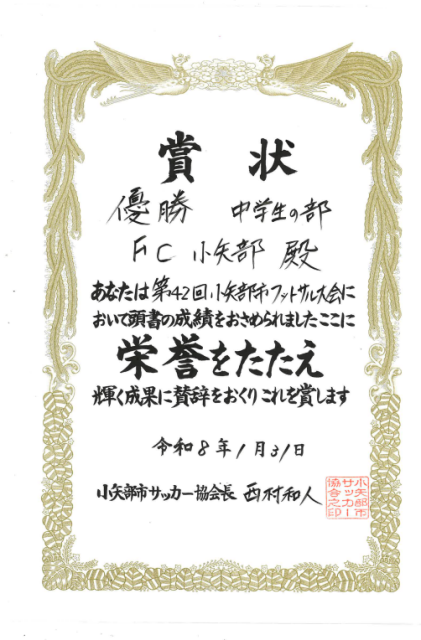 賞状
優勝 中学生の部
FC 小矢部 殿
あなたは第42回小矢部市フットサル大会に
おいて頭書の成績をおさめられましたここに
栄誉をたたえ
輝く成果に賛辞をおくりこれを賞します
令和8年1月31日
小矢部市サッカー協会長 西村和人
小矢部市
サッカー
協会之印